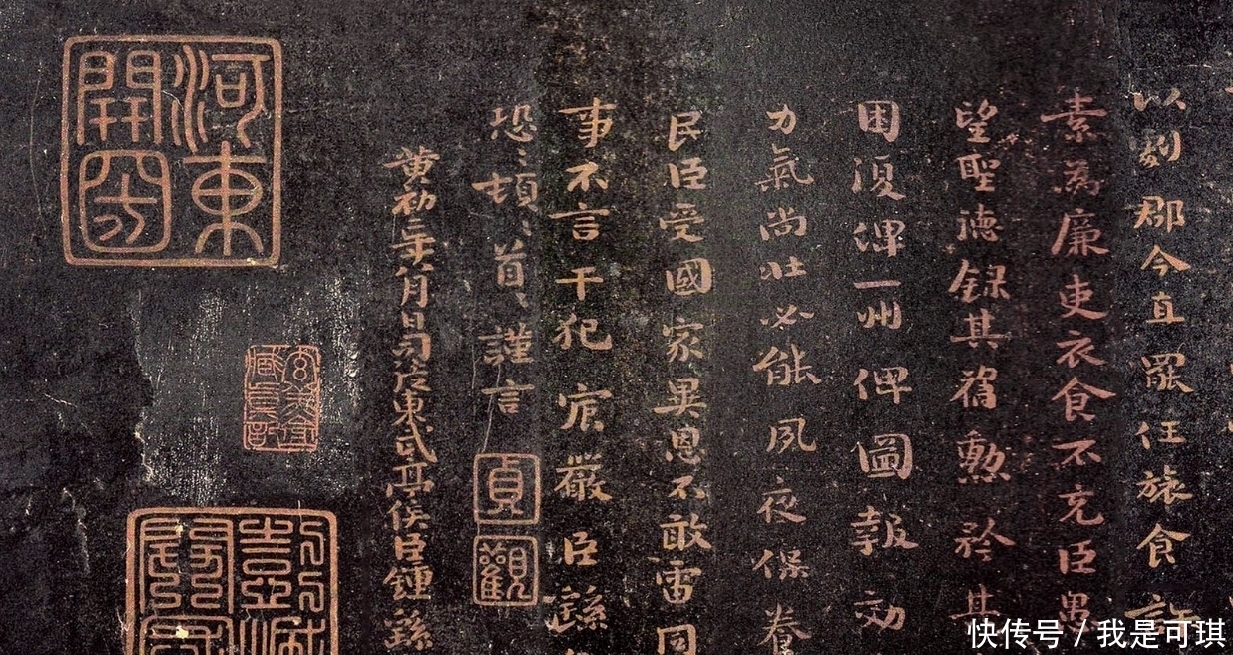 以刻郡今直罷任旅食許
素為廉吏衣食不充臣愚
望聖德錄其舊勳矜其
困復俾一州俾圖報効
力氣尚壯必能夙夜保養
民臣受國家異恩不敢雷同
事不言干犯宸嚴臣繇
恐〻頓〻首〻謹言
貞觀
黃初二年八月日司徒東武亭侯臣鍾繇
河東
開國
快传号 / 我是可琪